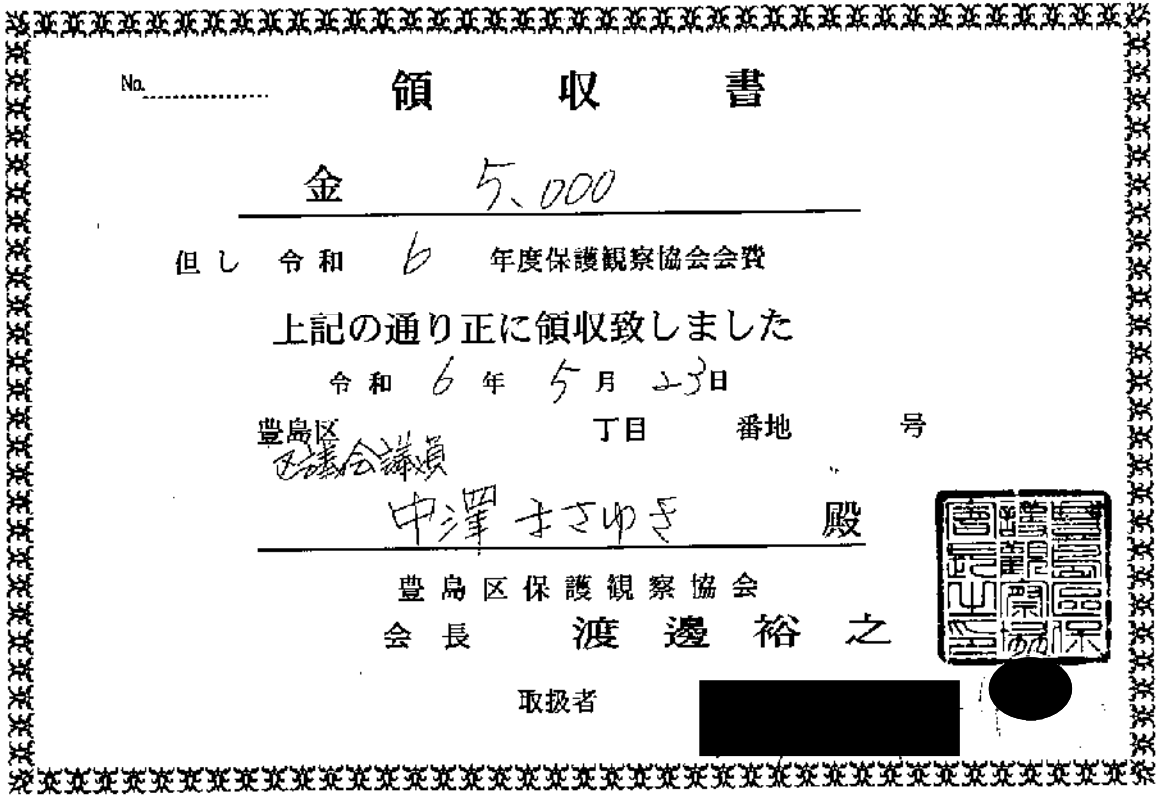 No.
領収書
金 5、000
但し 令和 6 年度保護観察協会会費
上記の通り正に領収致しました
令和 6 年 5 月 23日
豊島区 丁目 番地 号
区議会議員
中澤 まさゆき 殿
豊島区保護観察協会
会長 渡邊裕之
取扱者
豊島区保護觀察協会長之印